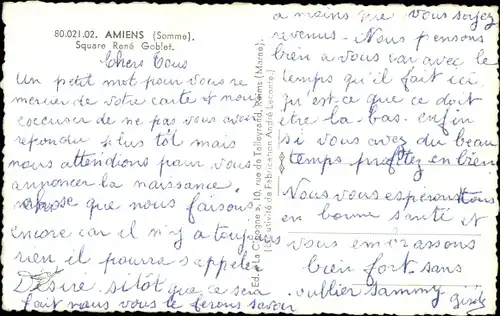 80.021.02. AMIENS (Somme).
Square René Goblet.
Chers Tous
Un petit mot pour vous re
mercier de votre carte et nous
excuser de ne pas vous avoir
repondu plus tôt mais
nous attendions pour vous
annoncer la naissance.
chose que nous faisons
encore car il n'y a toujours
rien il pourra s'appeler
Désiré sitôt que ce sera
fait nous vous le ferons savoir
Ed. « La Cigogne », 10, rue de Talleyrand, Reims (Marne).
(Exclusivité de Fabrication André Leconte.)
a moins que vous soyez
revenus. Nous pensons
bien a vous car avec le
temps qu'il fait ici
qu'est ce que ce doit
etre la-bas. enfin
si vous avez du beau
temps profitez en bien
Nous vous esperons tous
en bonne santé et
vous embrassons
bien fort sans
oublier Sammy